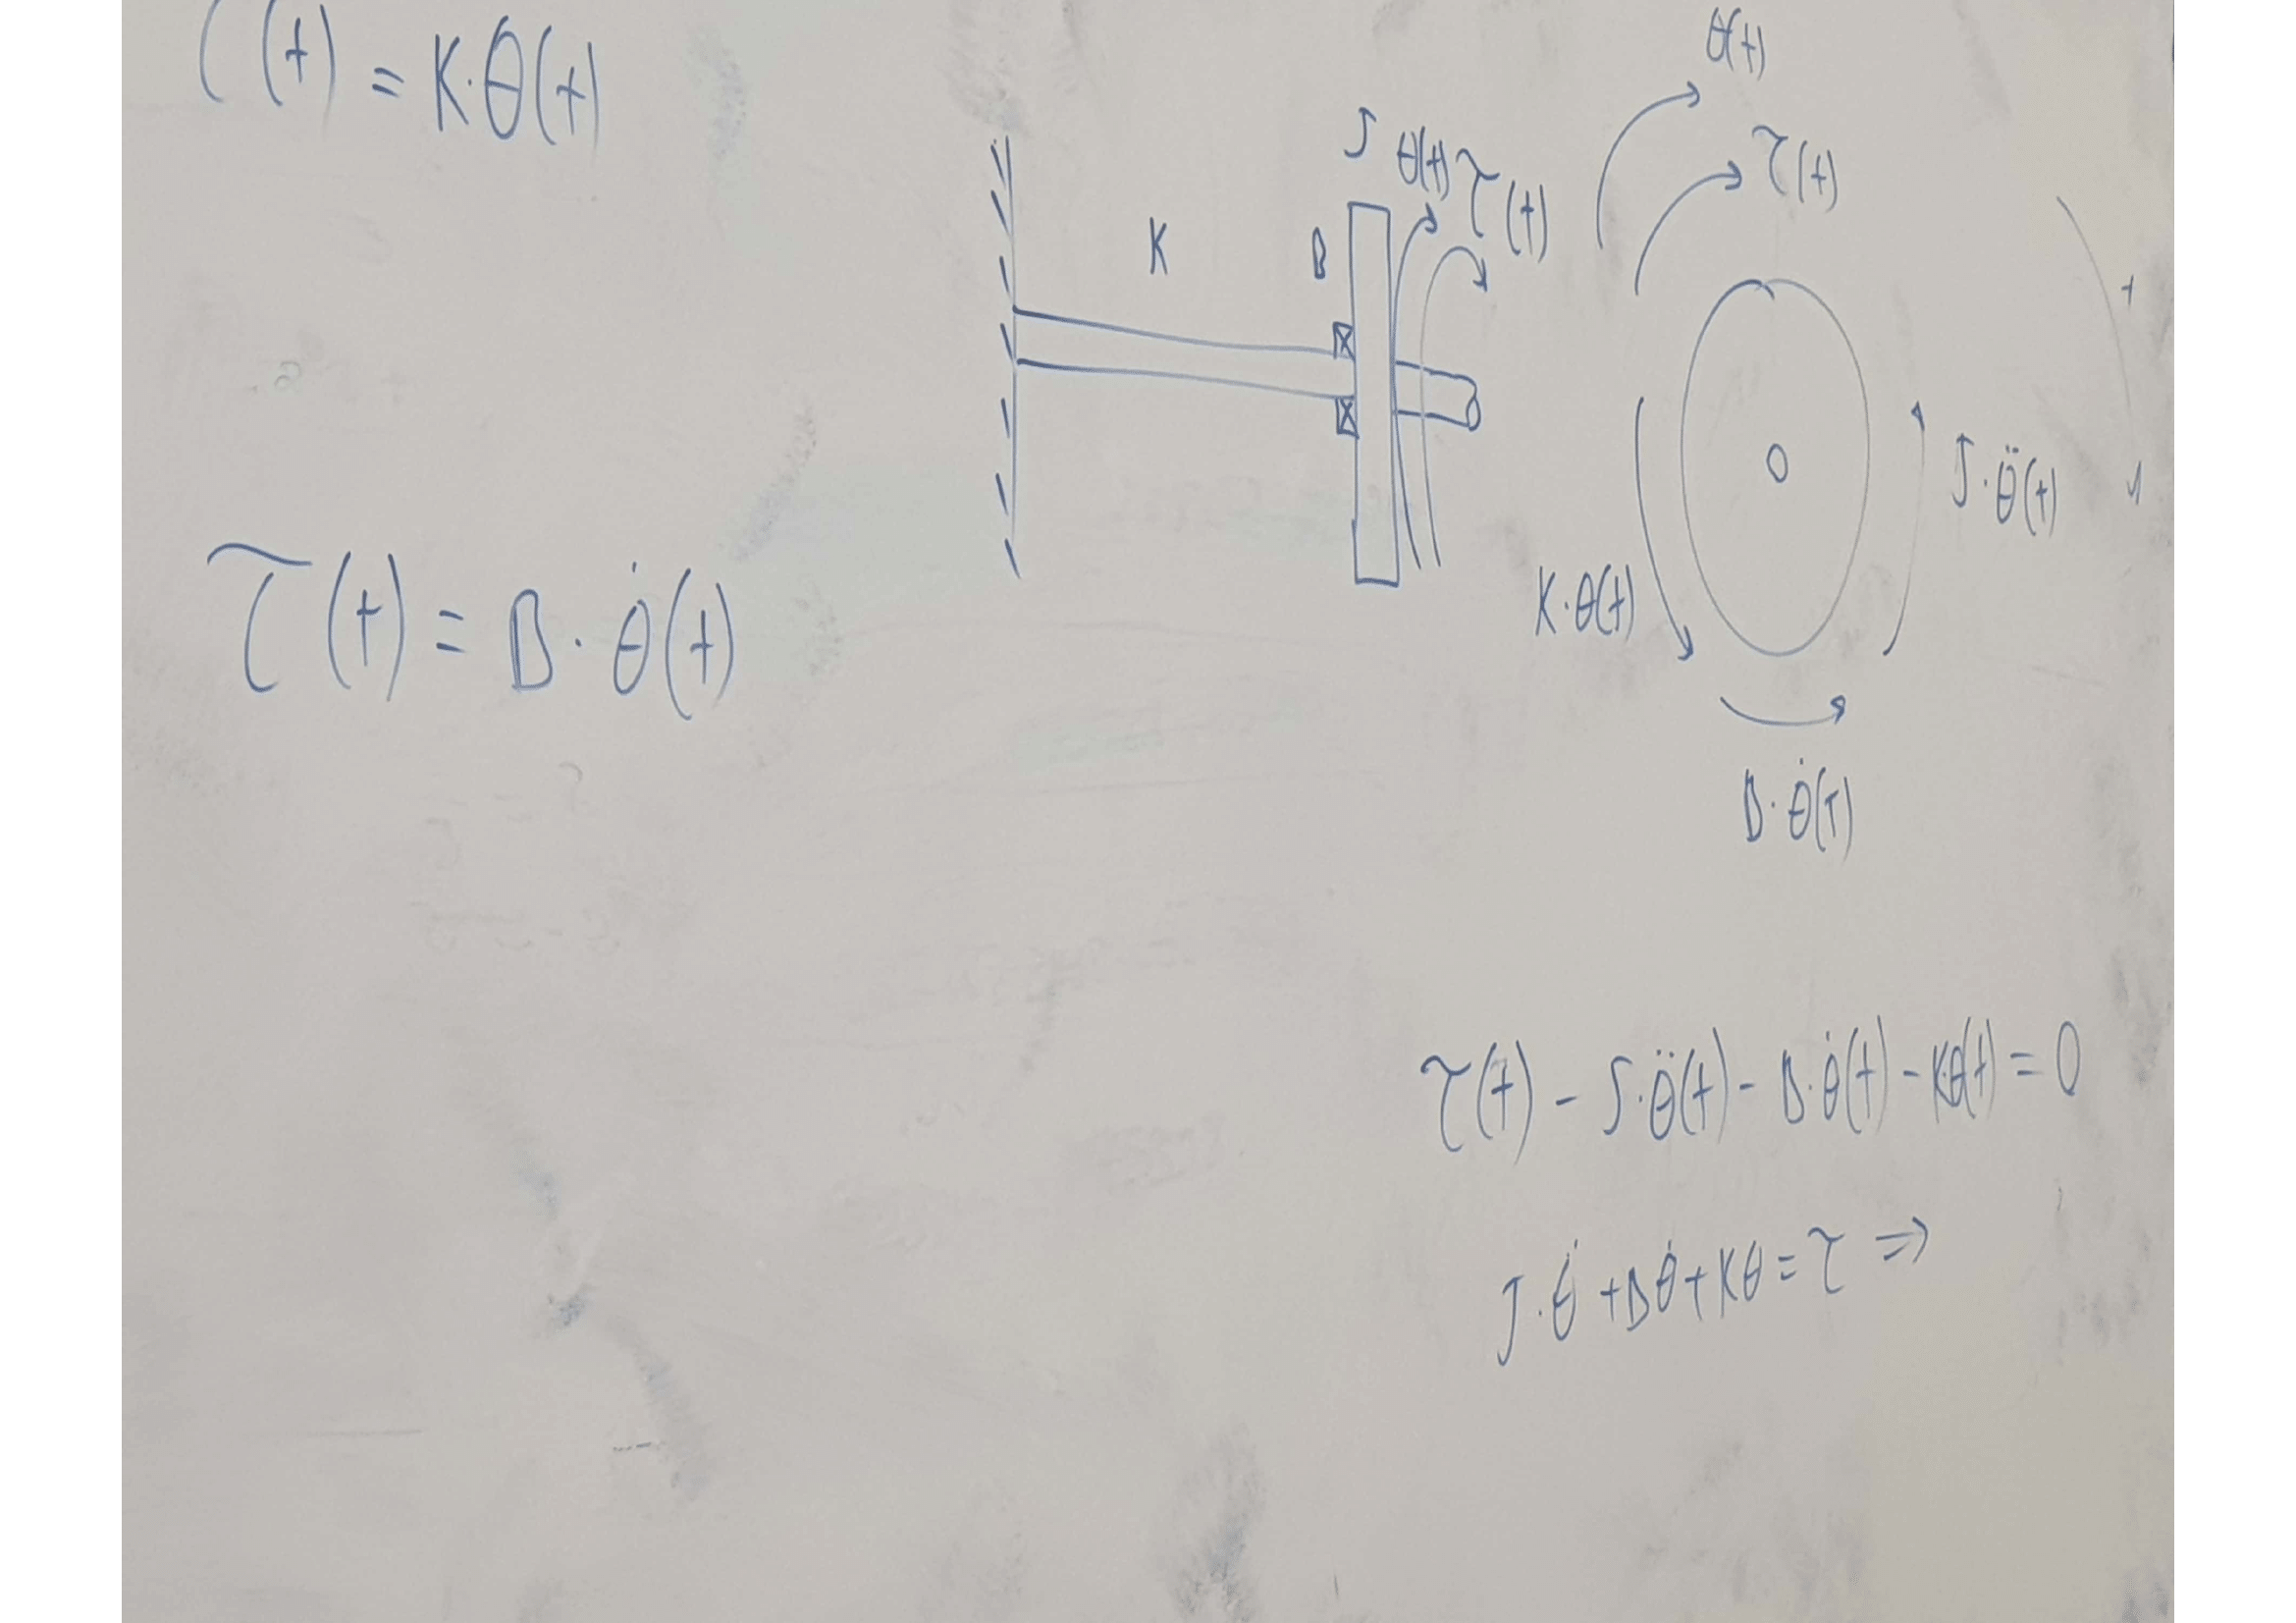 τ(t) = K·θ(t)
τ(t) = B·θ̇(t)
K
B
J
θ(t)
τ(t)
θ(t)
τ(t)
+
J·θ̈(t)
K·θ(t)
B·θ̇(t)
τ(t) - J·θ̈(t) - B·θ̇(t) - K·θ(t) = 0
J·θ̇ + Bθ̇ + Kθ = τ ⇒